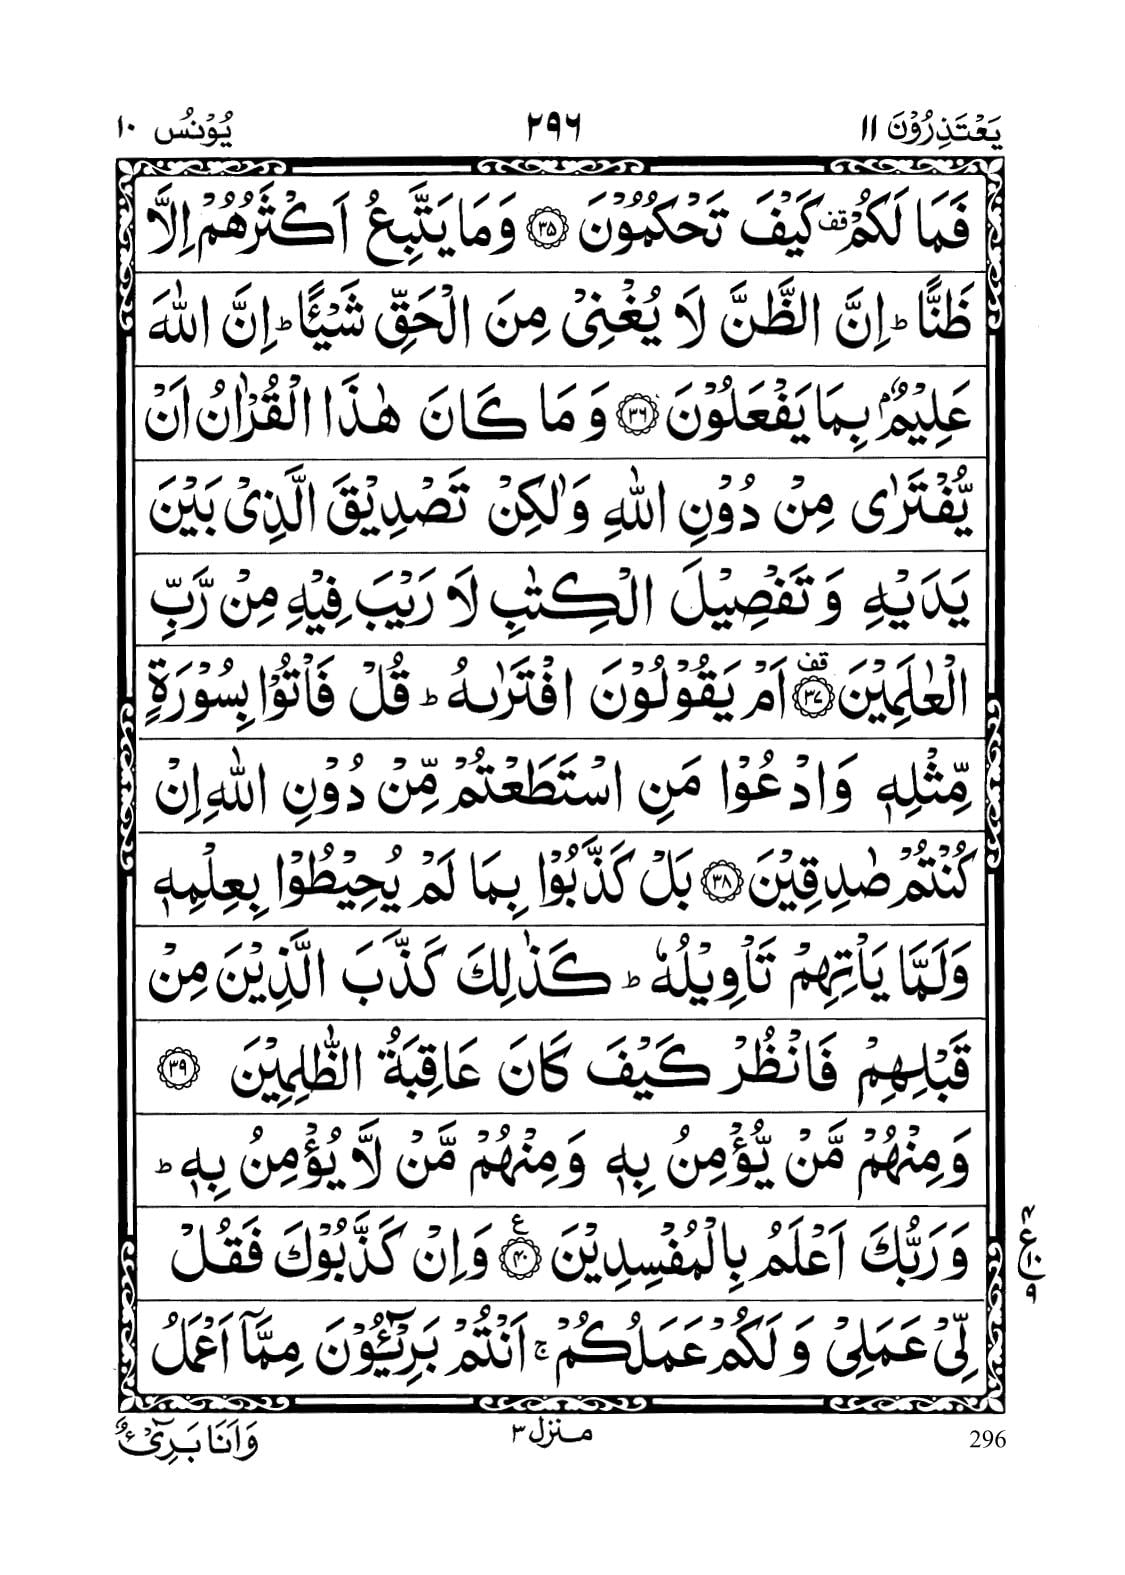 يَعْتَذِرُوْنَ ١١
٢٩٦
يُوْنُس ١٠
فَمَا لَكُمْ قف كَيْفَ تَحْكُمُوْنَ ۝٣٥ وَمَا يَتَّبِعُ اَكْثَرُهُمْ اِلَّا
ظَنًّا ؕ اِنَّ الظَّنَّ لَا يُغْنِيْ مِنَ الْحَقِّ شَيْـًٔا ؕ اِنَّ اللّٰهَ
عَلِيْمٌۢ بِمَا يَفْعَلُوْنَ ۝٣٦ وَمَا كَانَ هٰذَا الْقُرْاٰنُ اَنْ
يُّفْتَرٰى مِنْ دُوْنِ اللّٰهِ وَلٰكِنْ تَصْدِيْقَ الَّذِيْ بَيْنَ
يَدَيْهِ وَتَفْصِيْلَ الْكِتٰبِ لَا رَيْبَ فِيْهِ مِنْ رَّبِّ
الْعٰلَمِيْنَ ۝٣٧ قف اَمْ يَقُوْلُوْنَ افْتَرٰىهُ ؕ قُلْ فَاْتُوْا بِسُوْرَةٍ
مِّثْلِهٖ وَادْعُوْا مَنِ اسْتَطَعْتُمْ مِّنْ دُوْنِ اللّٰهِ اِنْ
كُنْتُمْ صٰدِقِيْنَ ۝٣٨ بَلْ كَذَّبُوْا بِمَا لَمْ يُحِيْطُوْا بِعِلْمِهٖ
وَلَمَّا يَاْتِهِمْ تَاْوِيْلُهٗ ؕ كَذٰلِكَ كَذَّبَ الَّذِيْنَ مِنْ
قَبْلِهِمْ فَانْظُرْ كَيْفَ كَانَ عَاقِبَةُ الظّٰلِمِيْنَ ۝٣٩
وَمِنْهُمْ مَّنْ يُّؤْمِنُ بِهٖ وَمِنْهُمْ مَّنْ لَّا يُؤْمِنُ بِهٖ ؕ
وَرَبُّكَ اَعْلَمُ بِالْمُفْسِدِيْنَ ۝٤٠ ع وَاِنْ كَذَّبُوْكَ فَقُلْ
لِّيْ عَمَلِيْ وَلَكُمْ عَمَلُكُمْ ۚ اَنْتُمْ بَرِيْٓـُٔوْنَ مِمَّاۤ اَعْمَلُ
٤
ع ١٠
٩
وَاَنَا بَرِيْٓءٌ
منزل ٣
296